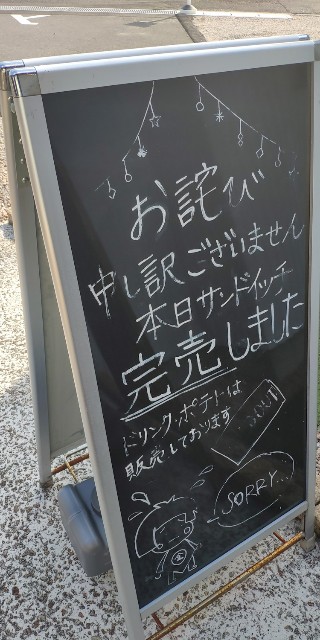 お詫び
申し訳ございません
本日サンドイッチ
完売しました
ドリンク・ポテトは
販売しております
SORRY...